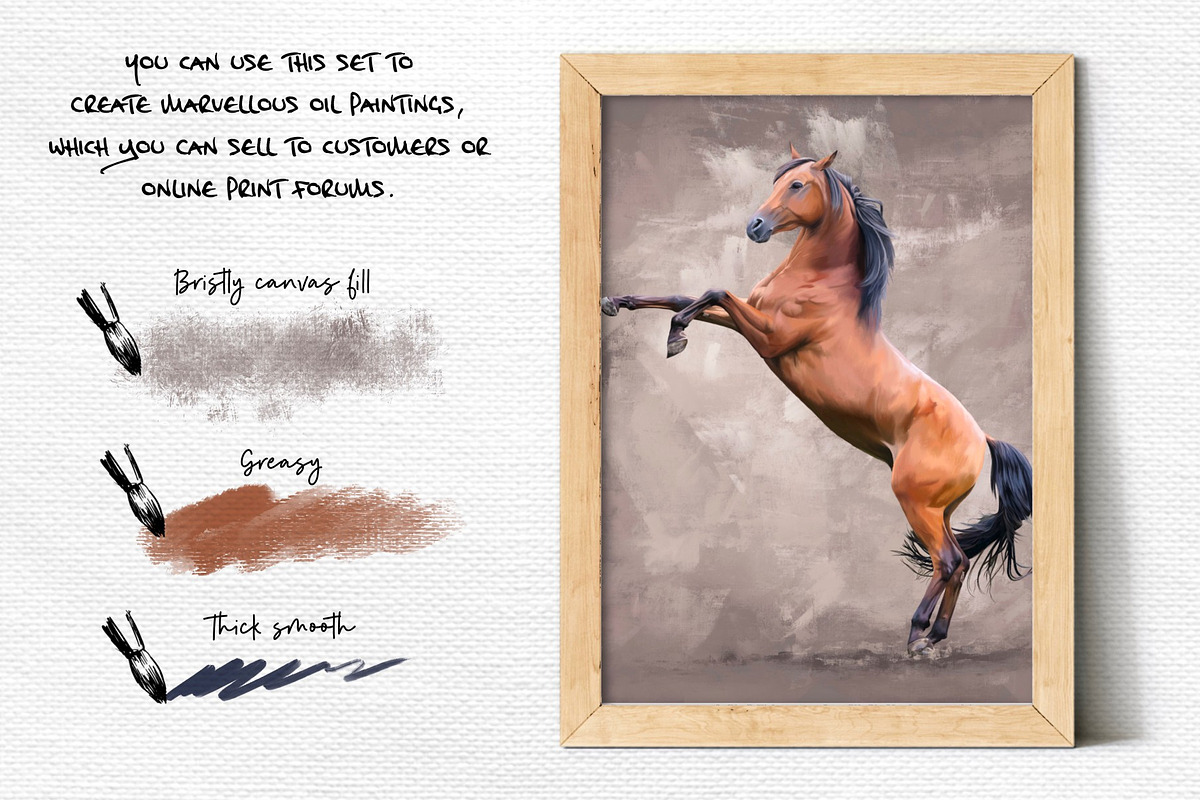 YOU CAN USE THIS SET TO
CREATE MARVELLOUS OIL PAINTINGS,
WHICH YOU CAN SELL TO CUSTOMERS OR
ONLINE PRINT FORUMS.
Bristly canvas fill
Greasy
Thick smooth